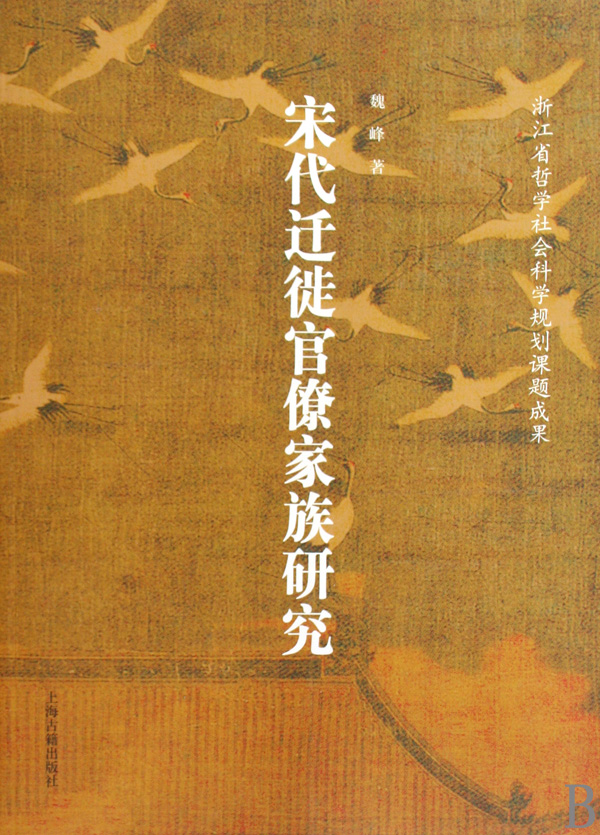 浙江省哲学社会科学规划课题成果
魏峰 著
宋代迁徙官僚家族研究
上海古籍出版社
B